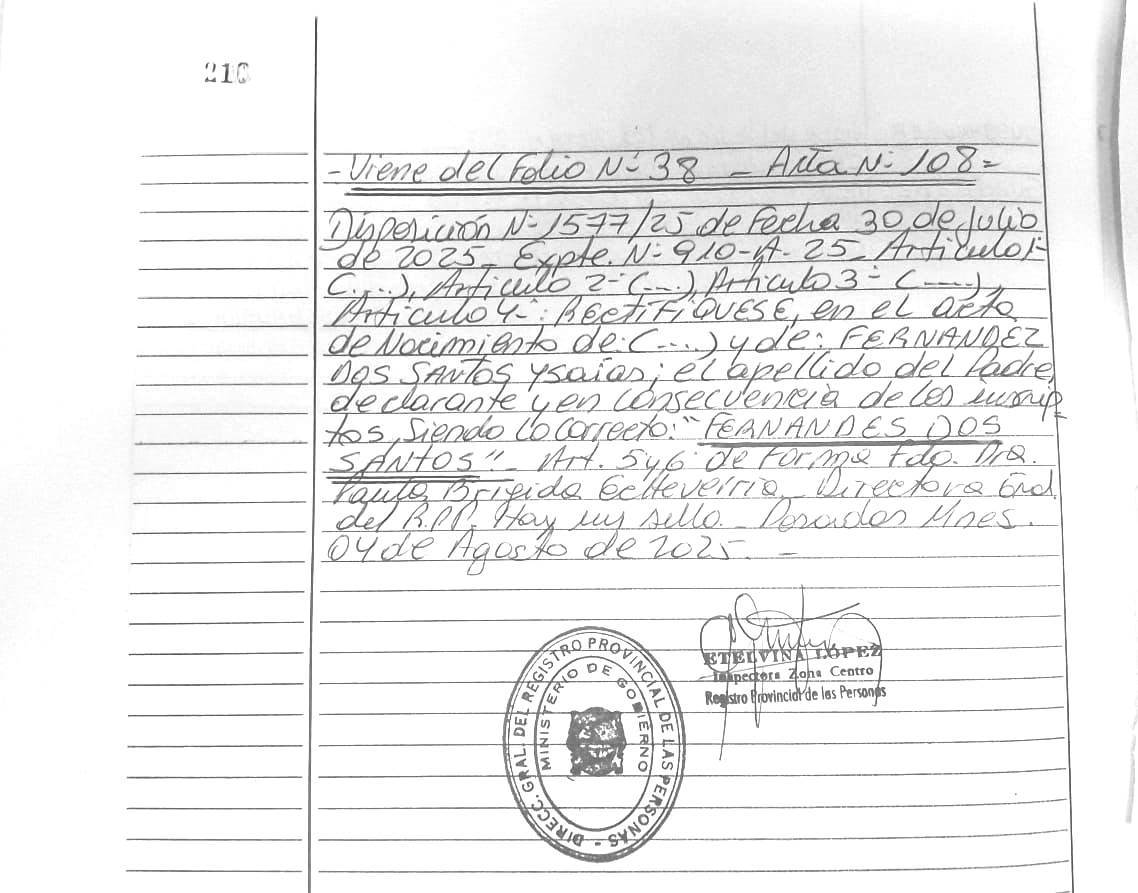 210
- Viene del Folio Nº 38 - Acta Nº 108=
Disposición Nº 1577/25 de Fecha 30 de Julio
de 2025 - Expte. Nº 910-A-25 - Artículo 1º
(....), Artículo 2º (...), Artículo 3º (....),
Artículo 4º: RECTIFÍQUESE, en el acta
de Nacimiento de: (....) y de: FERNANDEZ
DOS SANTOS Ysaías; el apellido del Padre
declarante y en consecuencia de los inscrip=
tos, Siendo lo correcto: "FERNANDES DOS
SANTOS" - Art. 5 y 6 de Forma Fdo. Dra.
Paula Brigida Echeverria - Directora Gral.
del R.P.P. Hay un sello - Posadas Mnes.
04 de Agosto de 2025. -
ETELVINA LÓPEZ
Inspectora Zona Centro
Registro Provincial de las Personas
DIRECC. GRAL. DEL REGISTRO PROVINCIAL DE LAS PERSONAS -
MINISTERIO DE GOBIERNO